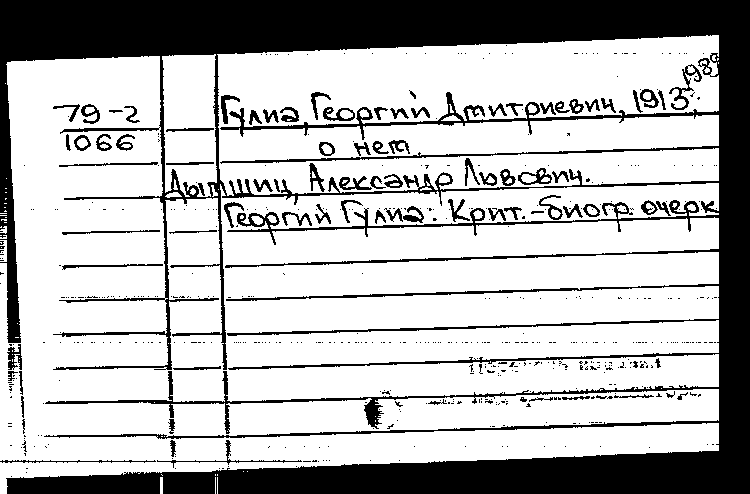 1989
79-2 Гулиа, Георгий Дмитриевич, 1913-
1066 о нем.
Дымшиц, Александр Львович.
Георгий Гулиа: Крит.-биогр. очерк